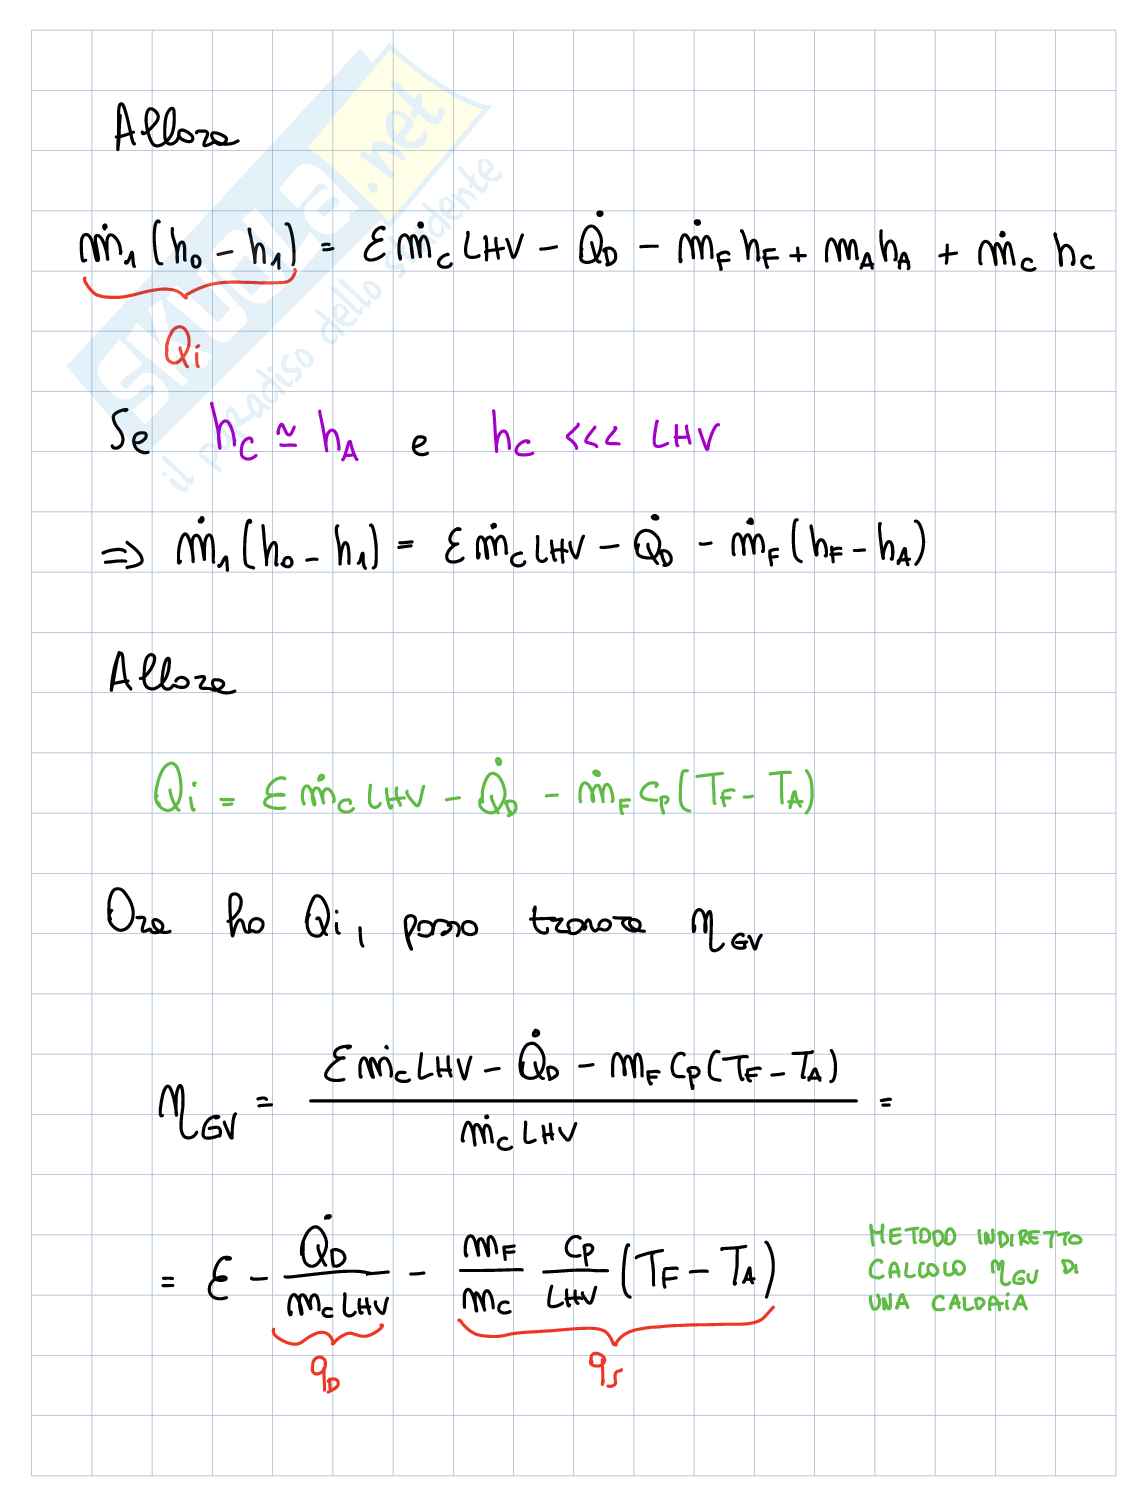 Allora
ṁ₁ (h₀ - h₁) = ε ṁ_C LHV - Q̇_D - ṁ_F h_F + m_A h_A + ṁ_C h_C
Qi
Se h_C ≃ h_A e h_C <<< LHV
⇒ ṁ₁ (h₀ - h₁) = ε ṁ_C LHV - Q̇_D - ṁ_F (h_F - h_A)
Allora
Qi = ε ṁ_C LHV - Q̇_D - ṁ_F c_p (T_F - T_A)
Ora ho Qi, posso trovare η_GV
η_GV = (ε ṁ_C LHV - Q̇_D - m_F c_p (T_F - T_A)) / (ṁ_C LHV) =
= ε - Q̇_D / (m_C LHV) - m_F / m_C c_p / LHV (T_F - T_A)
q_D q_s
METODO INDIRETTO
CALCOLO η_GV DI
UNA CALDAIA
SKUOLA.net
il paradiso dello studente